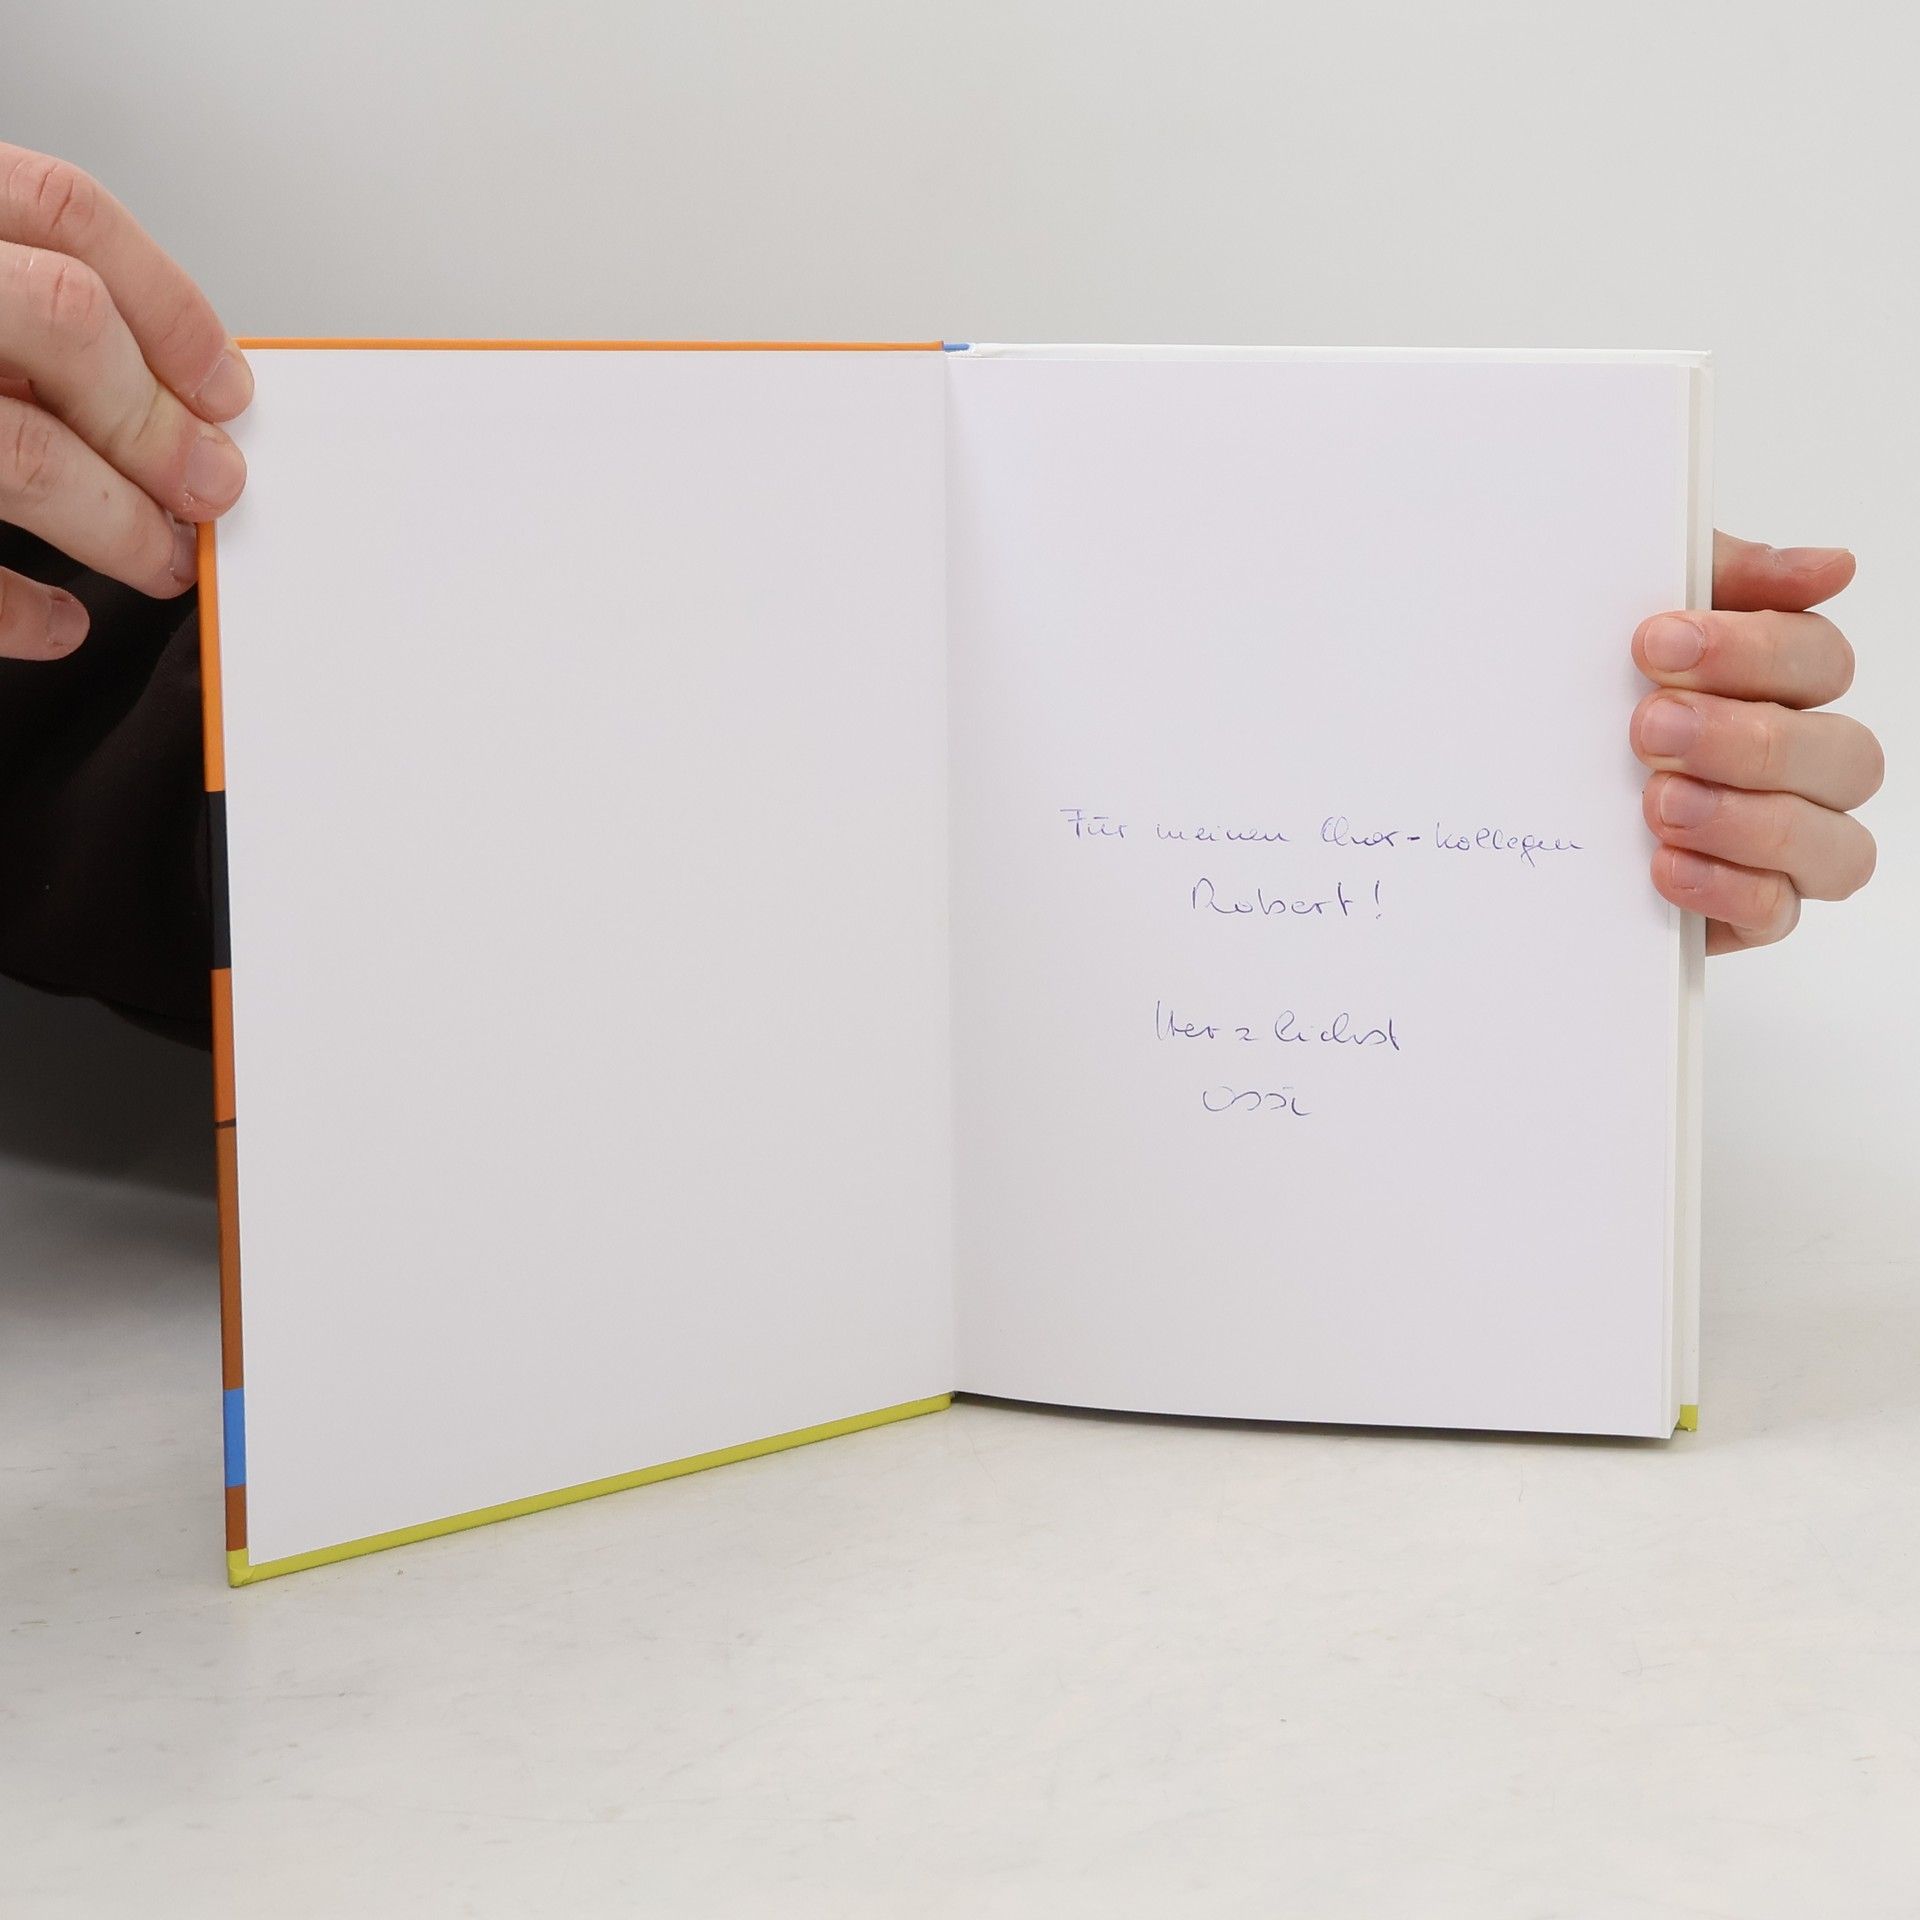 Für meinen Chor-Kollegen
Robert!
Herzlichst
Ossi